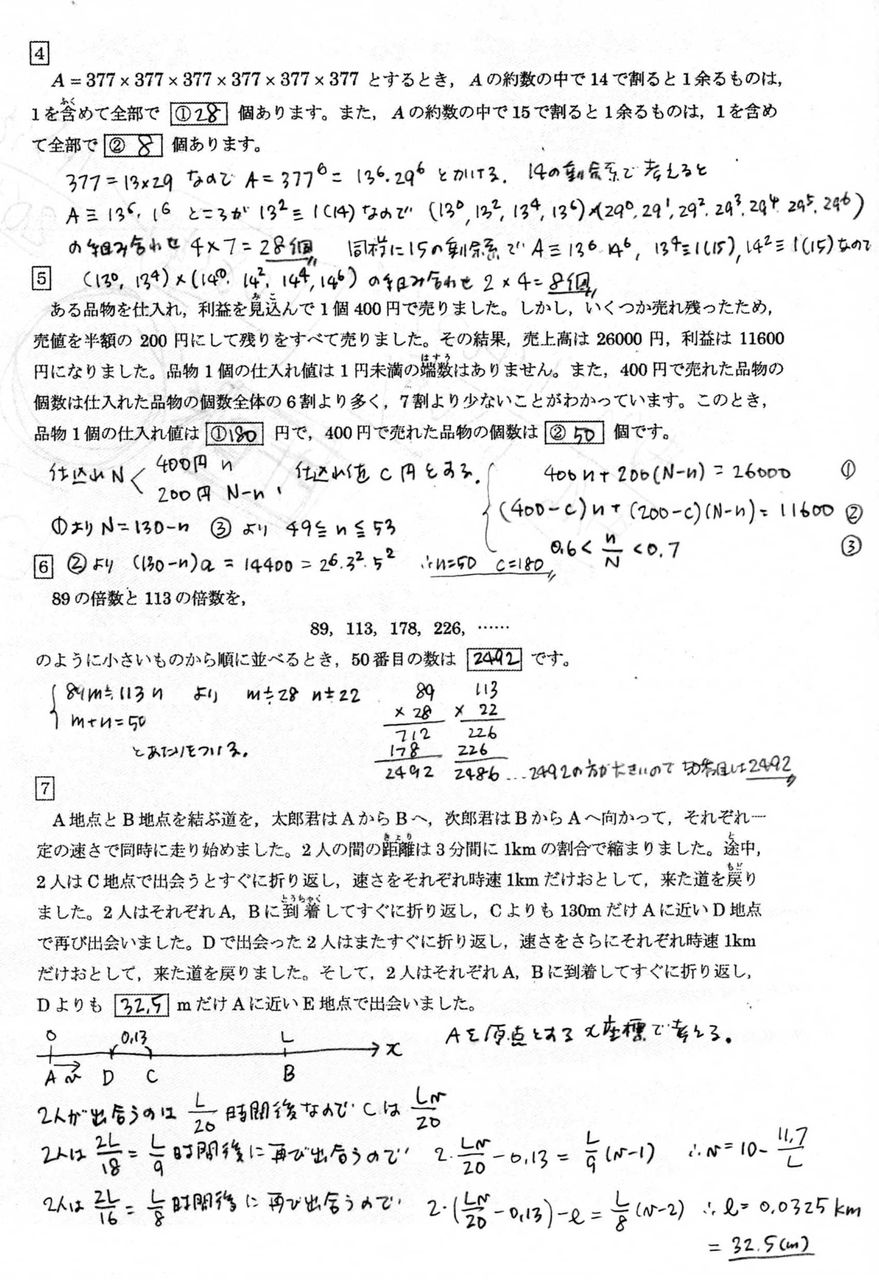 4
A = 377 × 377 × 377 × 377 × 377 × 377 とするとき，A の約数の中で 14 で割ると 1 余るものは，
1 を含めて全部で ①28 個あります。また，A の約数の中で 15 で割ると 1 余るものは，1 を含め
て全部で ② 8 個あります。
377=13×29 なので A=377⁶=13⁶·29⁶ とかける. 14の剰余系で考えると
A≡13⁶·1⁶ ところが 13²≡1(14)なので (13⁰,13²,13⁴,13⁶)×(29⁰,29¹,29²,29³,29⁴,29⁵,29⁶)
の組み合わせ 4×7=28個 同様に15の剰余系で A≡13⁶·14⁶, 13⁴≡1(15), 14²≡1(15)なので
(13⁰,13⁴)×(14⁰,14²,14⁴,14⁶) の組み合わせ 2×4=8個
5
ある品物を仕入れ，利益を見込んで 1 個 400 円で売りました。しかし，いくつか売れ残ったため，
売値を半額の 200 円にして残りをすべて売りました。その結果，売上高は 26000 円，利益は 11600
円になりました。品物 1 個の仕入れ値は 1 円未満の端数はありません。また，400 円で売れた品物の
個数は仕入れた品物の個数全体の 6 割より多く，7 割より少ないことがわかっています。このとき，
品物 1 個の仕入れ値は ①180 円で，400 円で売れた品物の個数は ② 50 個です。
仕込れ N < 400円 n 200円 N-n , 仕込れ値 c 円とする.
400n+200(N-n)=26000 ①
(400-c)n+(200-c)(N-n)=11600 ②
0.6<n/N<0.7 ③
①より N=130-n ③より 49≦n≦53
②より (130-n)a=14400=2⁶·3²·5² ∴n=50 c=180
6
89 の倍数と 113 の倍数を，
89，113，178，226，……
のように小さいものから順に並べるとき，50 番目の数は 2492 です。
89m≒113n より m≒28 n≒22
m+n=50
とあたりをつける.
89 113
×28 × 22
712 226
178 226
2492 2486 …2492の方が大きいので 50番目は2492
7
A 地点と B 地点を結ぶ道を，太郎君は A から B へ，次郎君は B から A へ向かって，それぞれ一
定の速さで同時に走り始めました。2 人の間の距離は 3 分間に 1km の割合で縮まりました。途中，
2 人は C 地点で出会うとすぐに折り返し，速さをそれぞれ時速 1km だけおとして，来た道を戻り
ました。2 人はそれぞれ A，B に到着してすぐに折り返し，C よりも 130m だけ A に近い D 地点
で再び出会いました。D で出会った 2 人はまたすぐに折り返し，速さをさらにそれぞれ時速 1km
だけおとして，来た道を戻りました。そして，2 人はそれぞれ A，B に到着してすぐに折り返し，
D よりも 32.5 m だけ A に近い E 地点で出会いました。
0 0.13 L x
A v D C B
Aを原点とする x座標で考える。
2人が出合うのは L/20 時間後なので Cは Lv/20
2人は 2L/18 = L/9 時間後に再び出合うので 2·Lv/20 - 0.13 = L/9 (v-1) ∴v=10- 11.7/L
2人は 2L/16 = L/8 時間後に再び出合うので 2·(Lv/20 - 0.13) - ℓ = L/8 (v-2) ∴ℓ=0.0325 km
= 32.5(m)